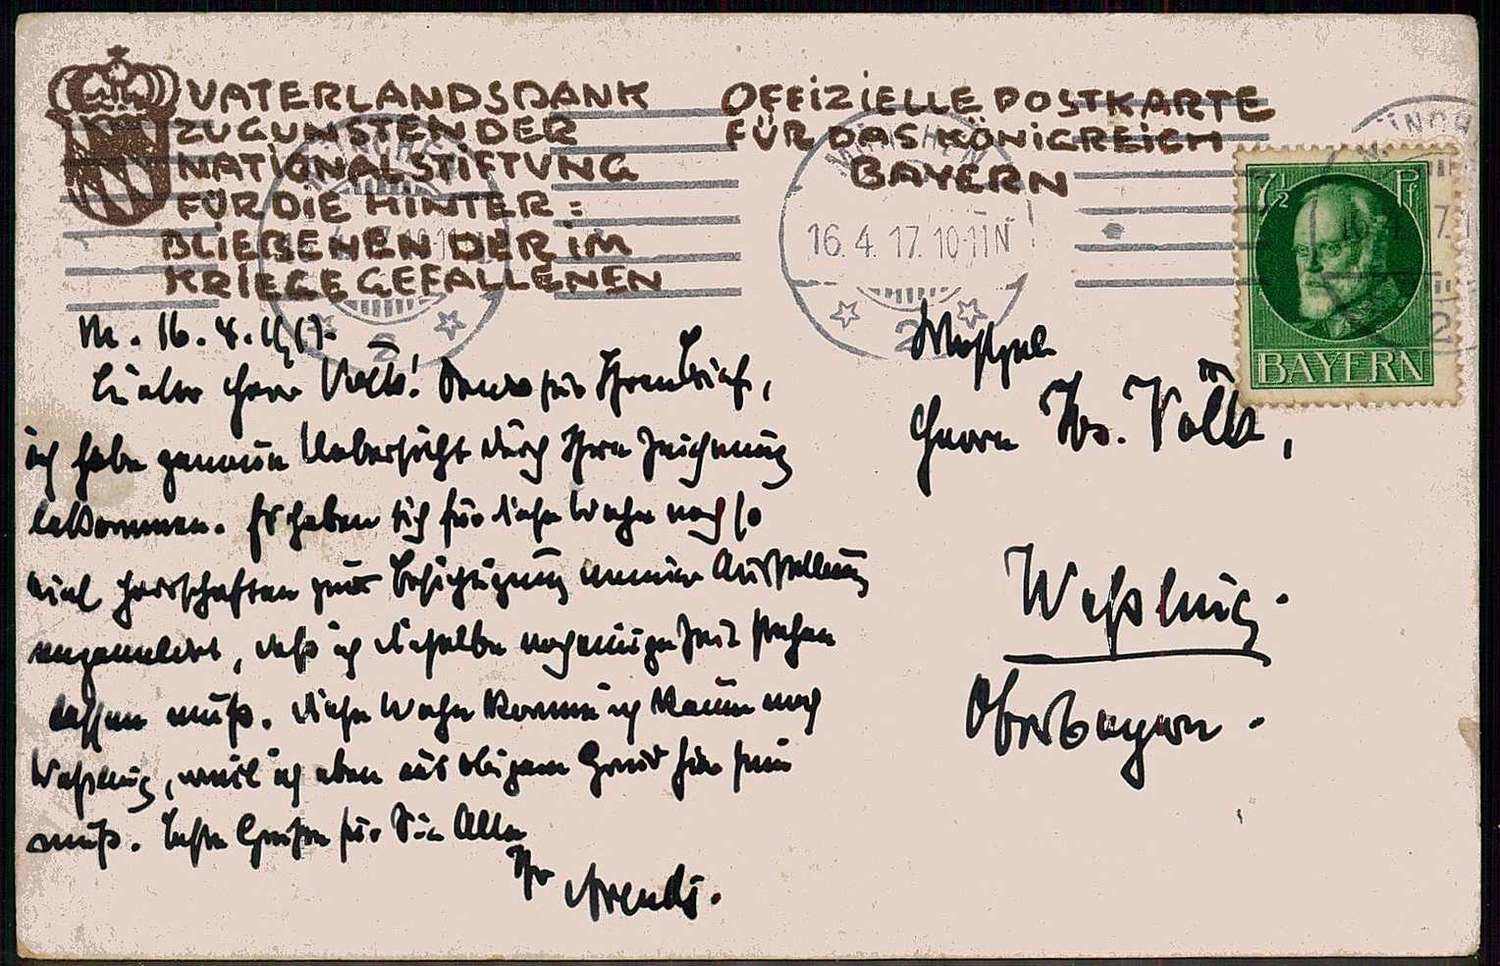 VATERLANDSDANK
ZUGUNSTEN DER
NATIONALSTIFTUNG
FÜR DIE HINTER=
BLIEBENEN DER IM
KRIEGE GEFALLENEN
OFFIZIELLE POSTKARTE
FÜR DAS KÖNIGREICH
BAYERN
MÜNCHEN
16.4.17.10-11N
2
7½ Pf
BAYERN
M. 16.4.1917.
Lieber Herr Volk! Danke für Ihren Brief,
ich habe genaue Uebersicht durch Ihre Zeichnung
bekommen. Es haben sich für diese Woche noch so
viel Herrschaften zur Besichtigung meiner Ausstellung
angemeldet, daß ich dieselbe noch einige Zeit stehen
lassen muß. Diese Woche komme ich kaum nach
Weßling, weil ich eben aus obigem Grund hier sein
muß. Beste Grüße für Sie Alle
Ihr Arends.
Herrn Jos. Volk,
Weßling.
Oberbayern.